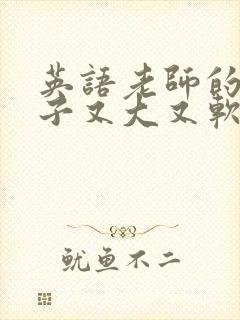 英語老師的
子又大又軟
魷魚不二